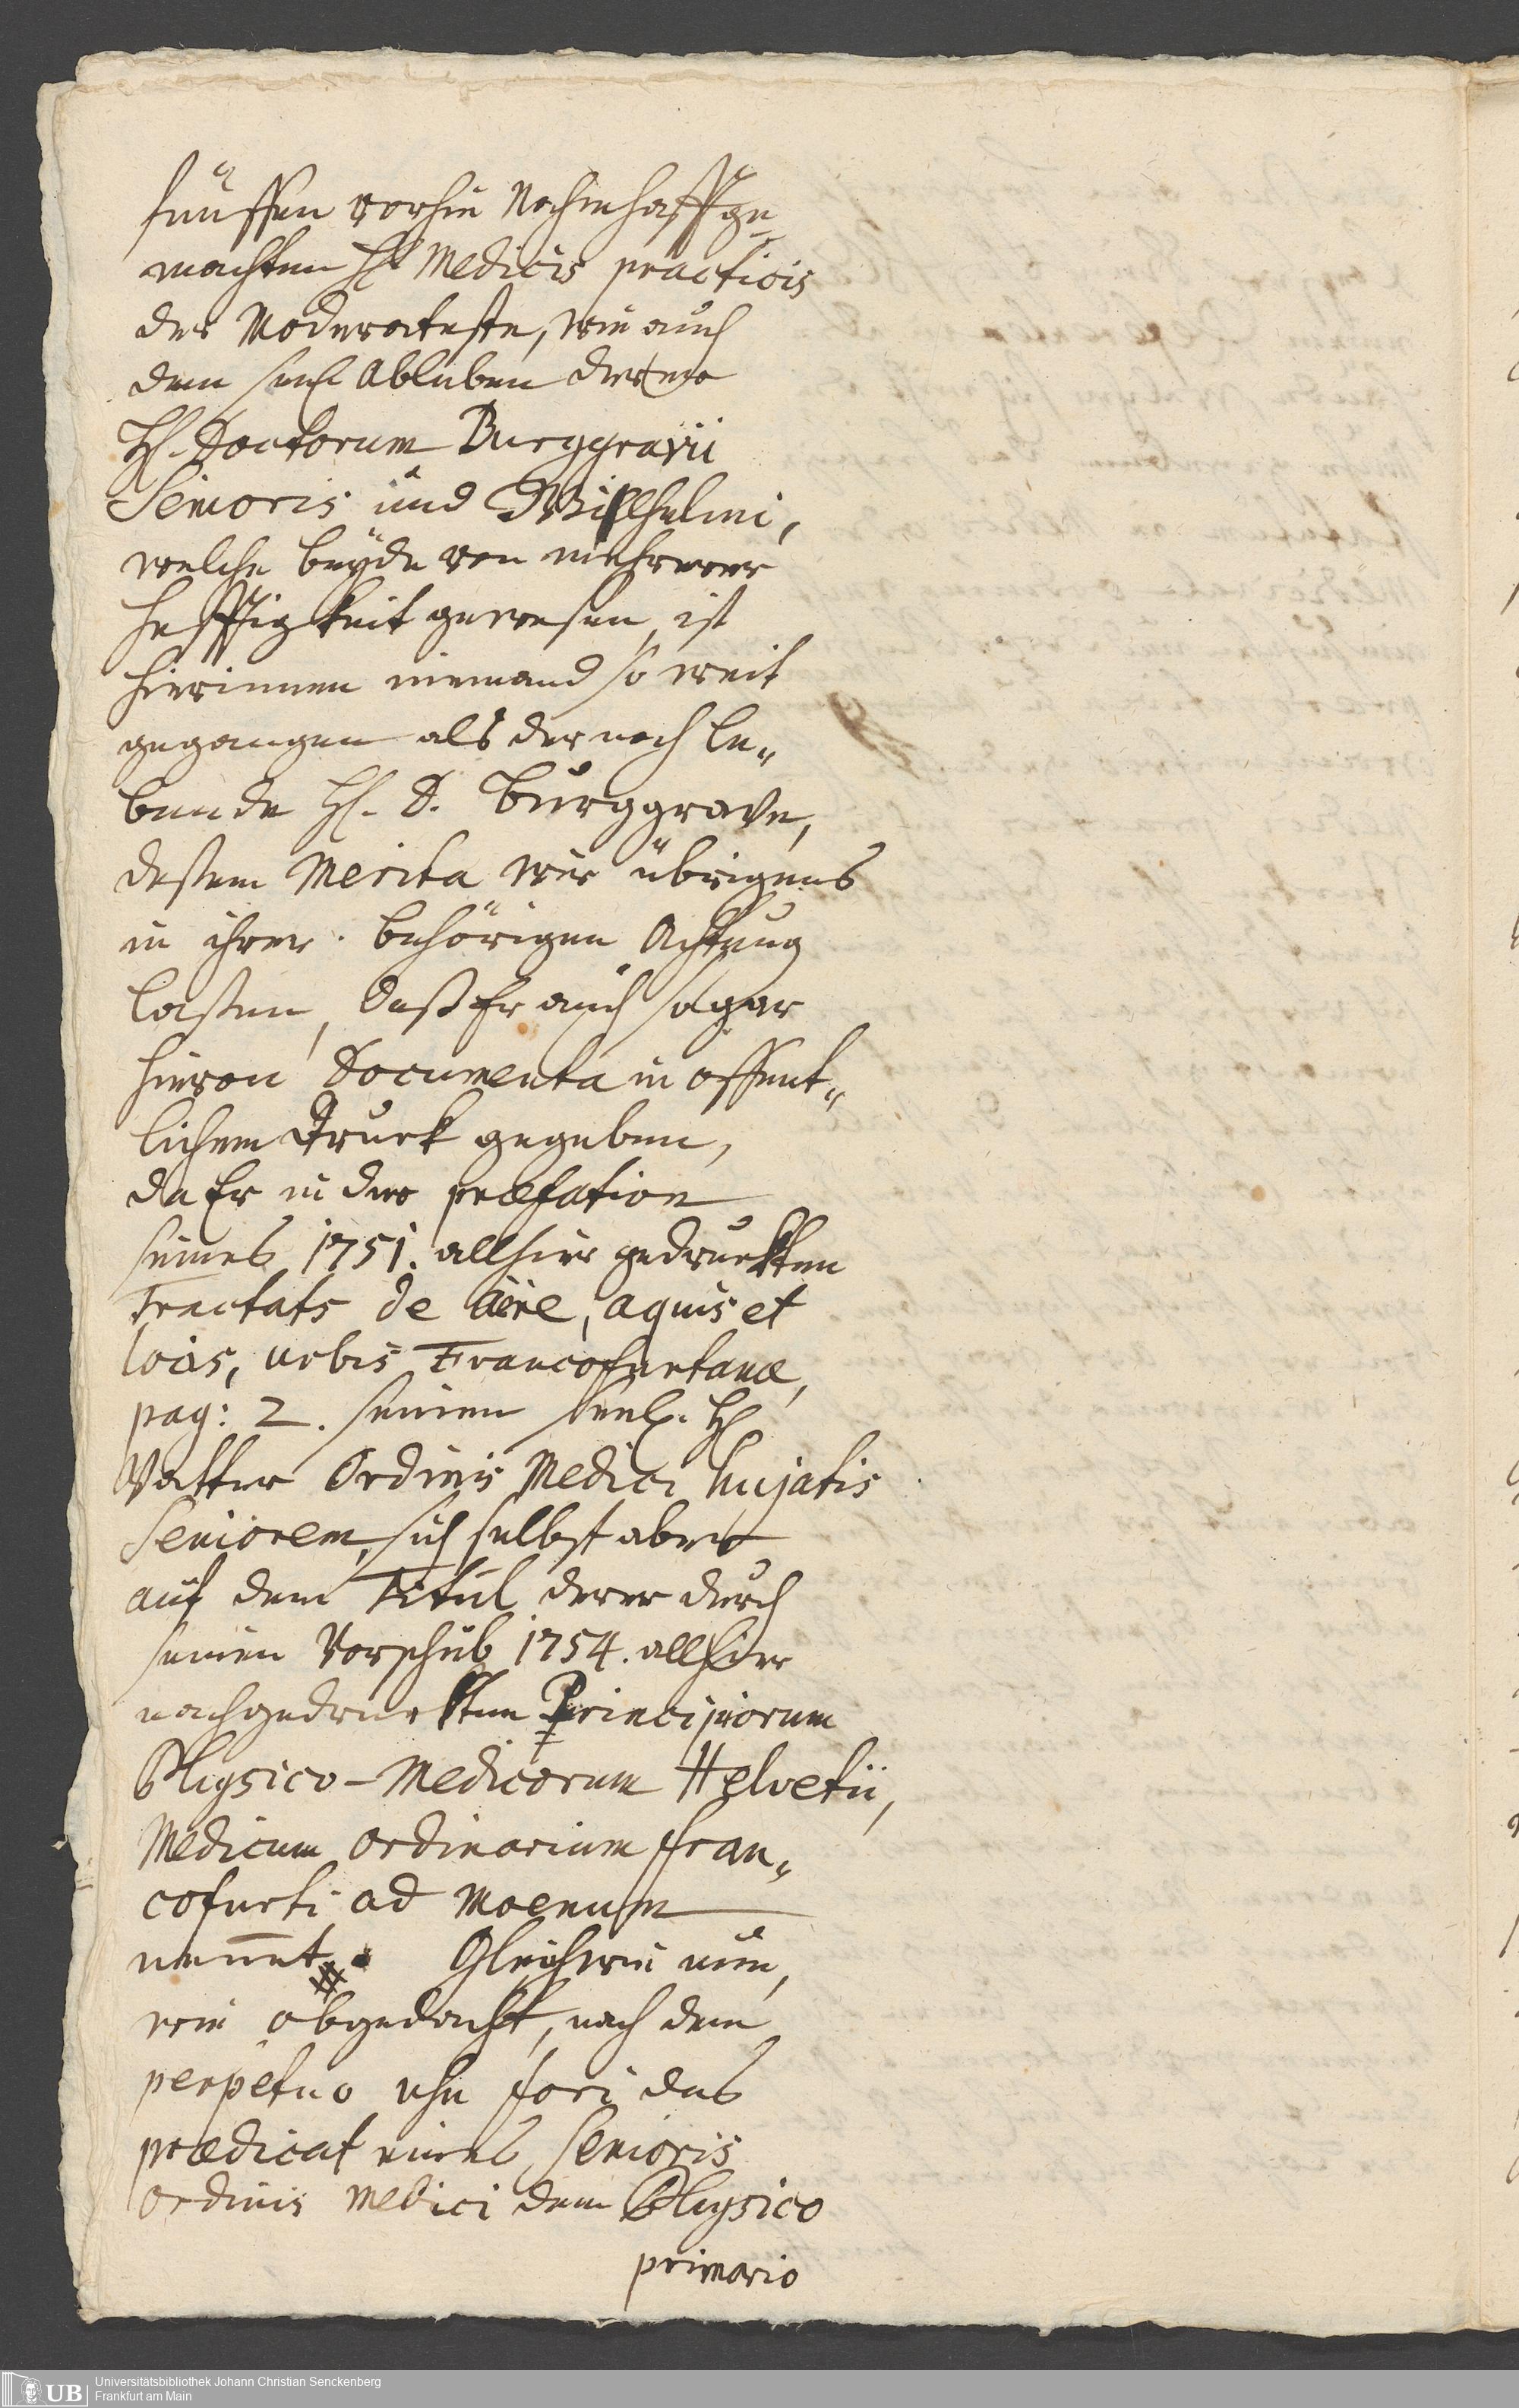 fünffen vorhin Nahmhafft ge-
machten HH Medicis practicis
der Moderateste, wie auch
dem seel Ableben derer
HH. Doctorum Burggravii
Senioris und Willhelmi,
welche beyde von mehrerer
Hefftigkeit gewesen, ist
hierinnen niemand so weit
gegangen als der noch le„
bende H. D. Burggrave,
deßen Merita wir übrigens
in ihrer behörigen Achtung
laßen, daß Er auch sogar
hievon Documenta in offent„
lichem Druck gegeben,
da Er in der præfation
seines 1751. allhier gedruckten
Tractats de aëre, aquis et
locis, urbis Francofurtanæ,
pag: 2. seinen seel. H
Vatter Ordinis Medici hujatis
Seniorem, sich selbst aber
auf dem Titul derer durch
seinen Vorschub 1754. allhier
nachgedruckten Principiorum
Physico-Medicorum Helvetii,
Medicum ordinarium Fran„
cofurti ad Moenum
nennet. Gleichwie nun,
wie obgedacht, nach dem
perpetuo usu fori das
prædicat eines Senioris
ordinis Medici dem Physico
primario
Universitätsbibliothek Johann Christian Senckenberg
Frankfurt am Main
UB